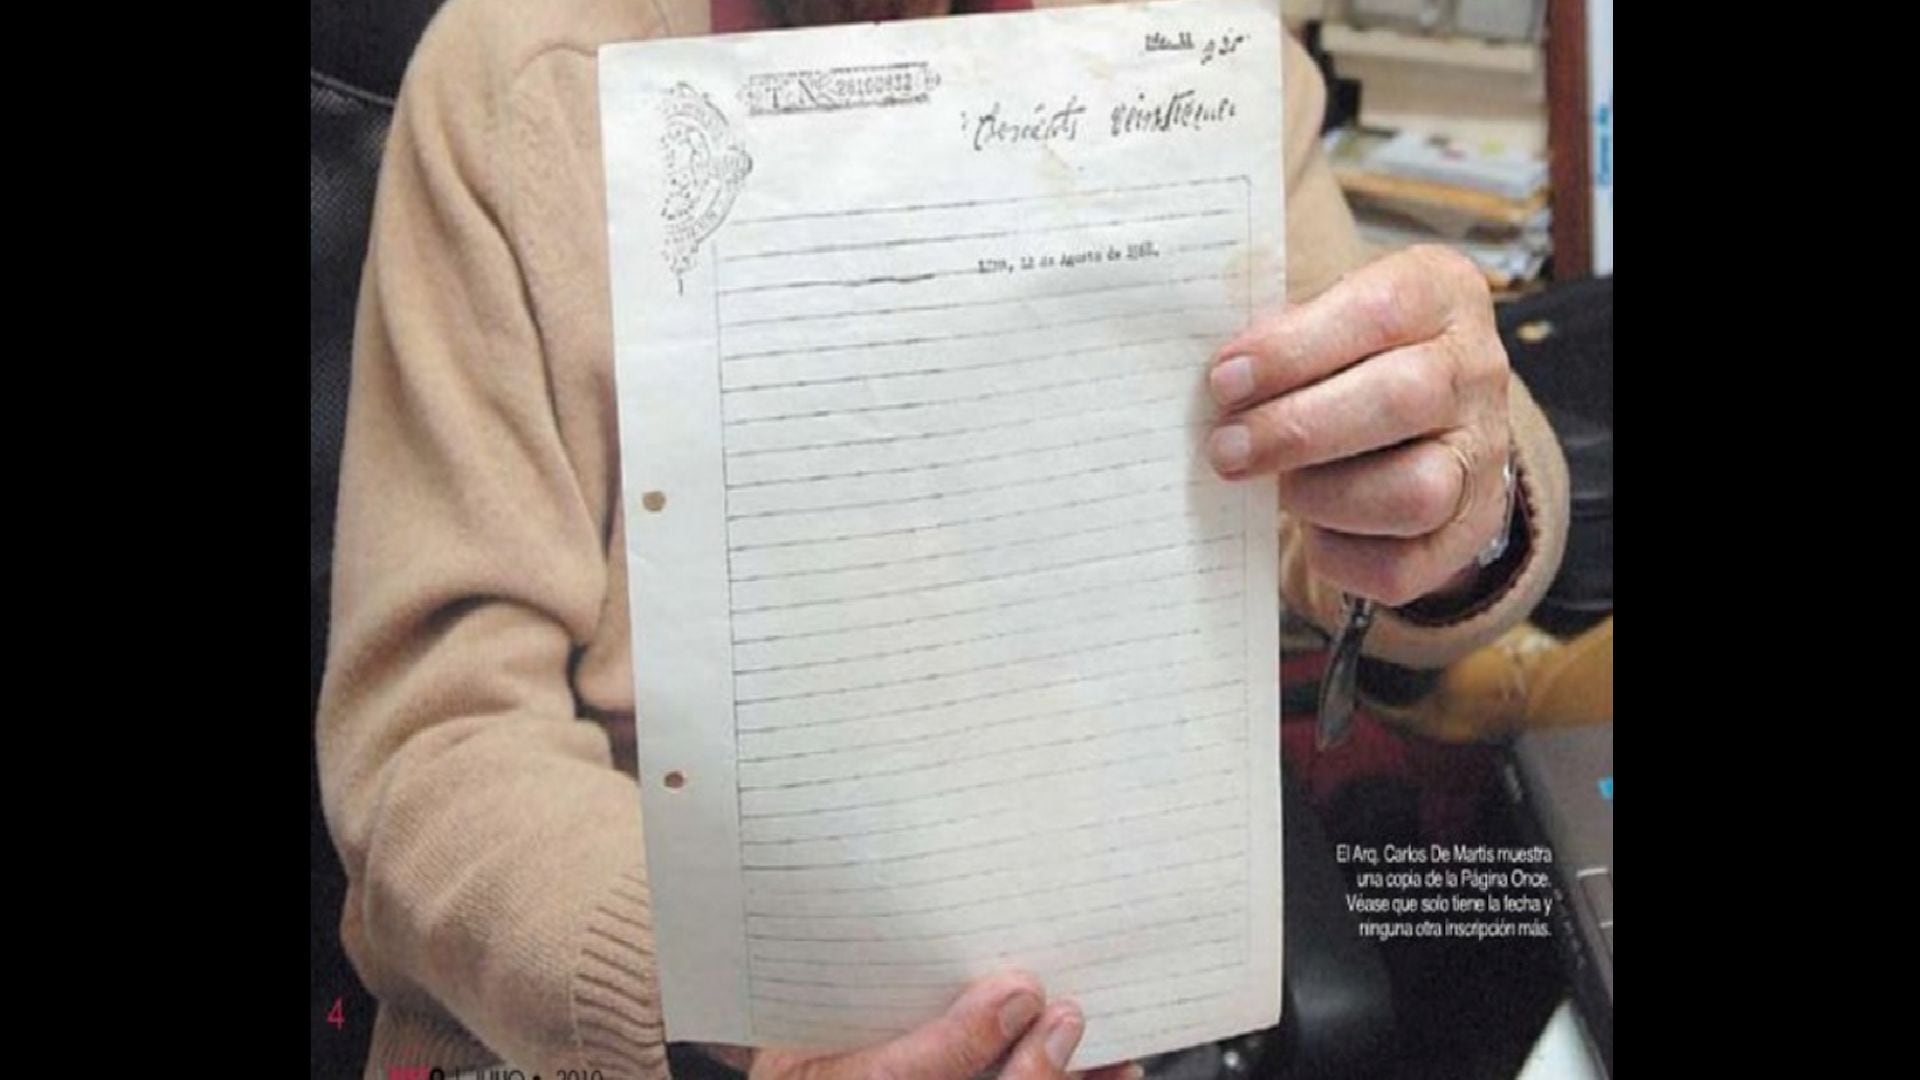 Pág. 11 225
T. N. 28100832
Doscientos veinticinco
Lima, 12 de Agosto de 1968.
El Arq. Carlos De Martis muestra
una copia de la Página Once.
Véase que solo tiene la fecha y
ninguna otra inscripción más.
4
JULIO • 2010